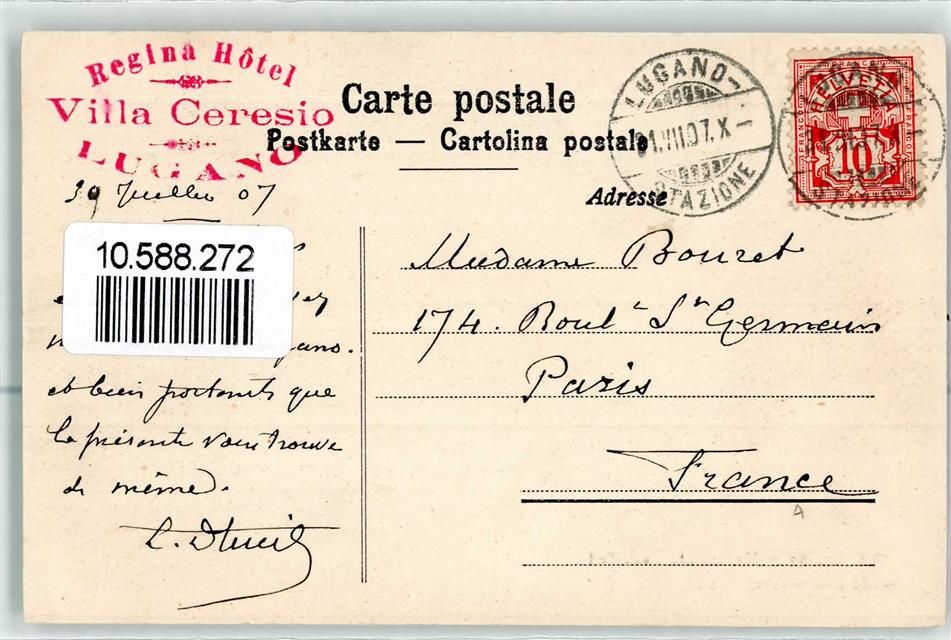 Regina Hôtel
Villa Ceresio
LUGANO
Carte postale
Postkarte — Cartolina postale
LUGANO
VIII.07. X
STAZIONE
HELVETIA
FRANCO
10
Adresse
Juillet 07
10.588.272
et bien portants que
la présente vous trouve
de même.
Madame Bouret
174. Boul. St Germain
Paris
France